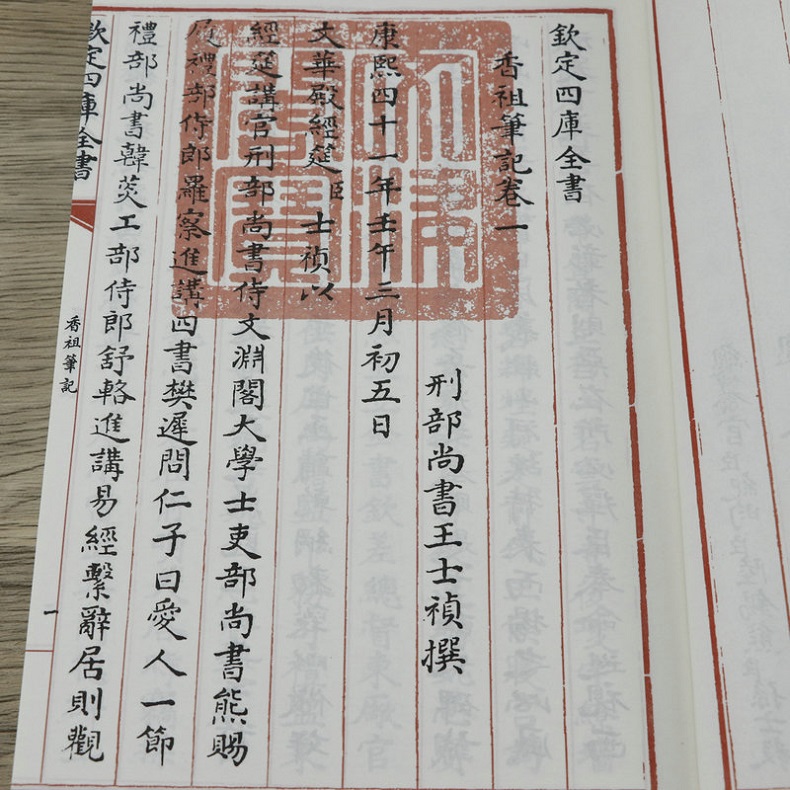 欽定四庫全書
香祖筆記卷一
刑部尚書王士禎撰
康熙四十一年壬午三月初五日
文華殿經筵臣士禎以
經筵講官刑部尚書侍文淵閣大學士吏部尚書熊賜
履禮部侍郎羅察進講四書樊遲問仁子曰愛人一節
禮部尚書韓菼工部侍郎舒輅進講易經繫辭居則觀
欽定四庫全書
香祖筆記
一
文淵
閣寶